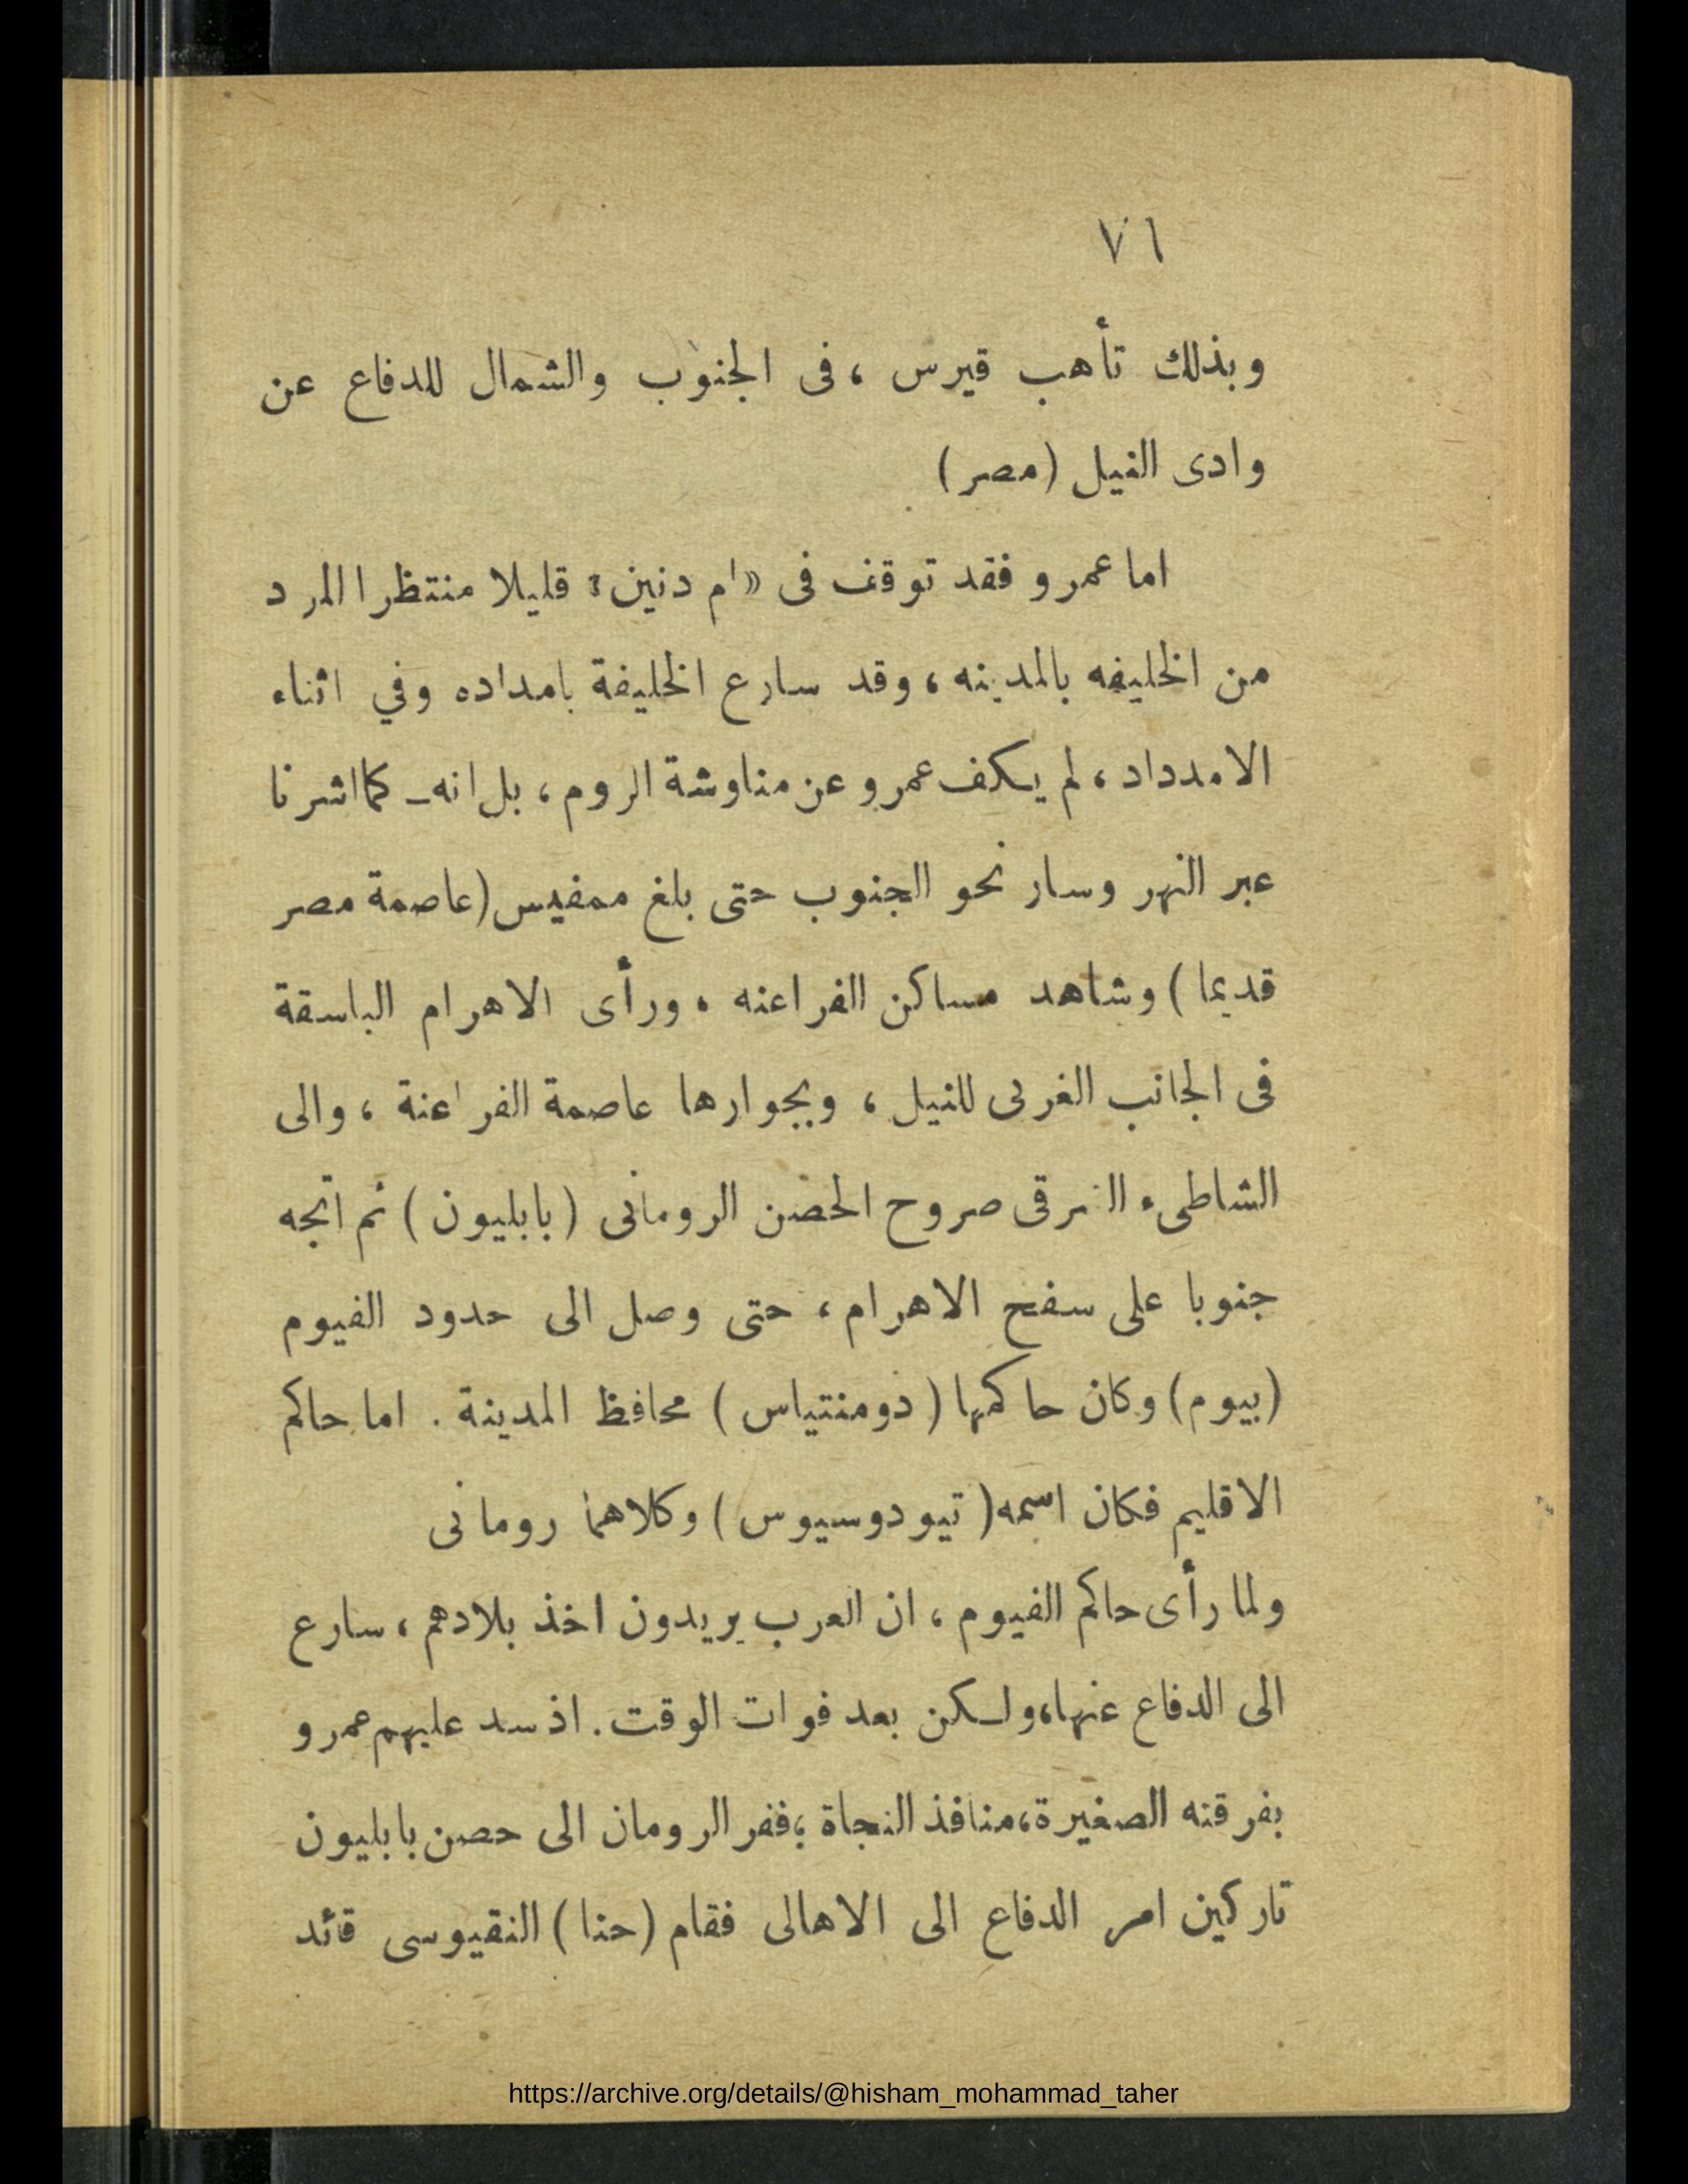 ٧٦
وبذلك تأهب قيرس ، فى الجنوب والشمال للدفاع عن
وادى النيل (مصر)
اما عمرو فقد توقف فى «ام دنين» قليلا منتظرا المرد
من الخليفه بالمدينه ، وقد سارع الخليفة بامداده وفي اثناء
الامدداد ، لم يكف عمرو عن مناوشة الروم ، بل انه ـ كما اشرنا
عبر النهر وسار نحو الجنوب حتى بلغ ممفيس (عاصمة مصر
قديما ) وشاهد مساكن الفراعنه ، ورأى الاهرام الباسقة
فى الجانب الغربى للنيل ، وبجوارها عاصمة الفراعنة ، والى
الشاطىء الشرقى صروح الحصن الرومانى ( بابليون ) ثم اتجه
جنوبا على سفح الاهرام ، حتى وصل الى حدود الفيوم
(بيوم) وكان حاكمها ( دومنتياس ) محافظ المدينة . اما حاكم
الاقليم فكان اسمه ( تيودوسيوس ) وكلاهما رومانى
ولما رأى حاكم الفيوم ، ان العرب يريدون اخذ بلادهم ، سارع
الى الدفاع عنها، ولكن بعد فوات الوقت . اذ سد عليهم عمرو
بفرقته الصغيرة، منافذ النجاة ؛ ففر الرومان الى حصن بابليون
تاركين امر الدفاع الى الاهالى فقام (حنا ) النقيوسى قائد
https://archive.org/details/@hisham_mohammad_taher